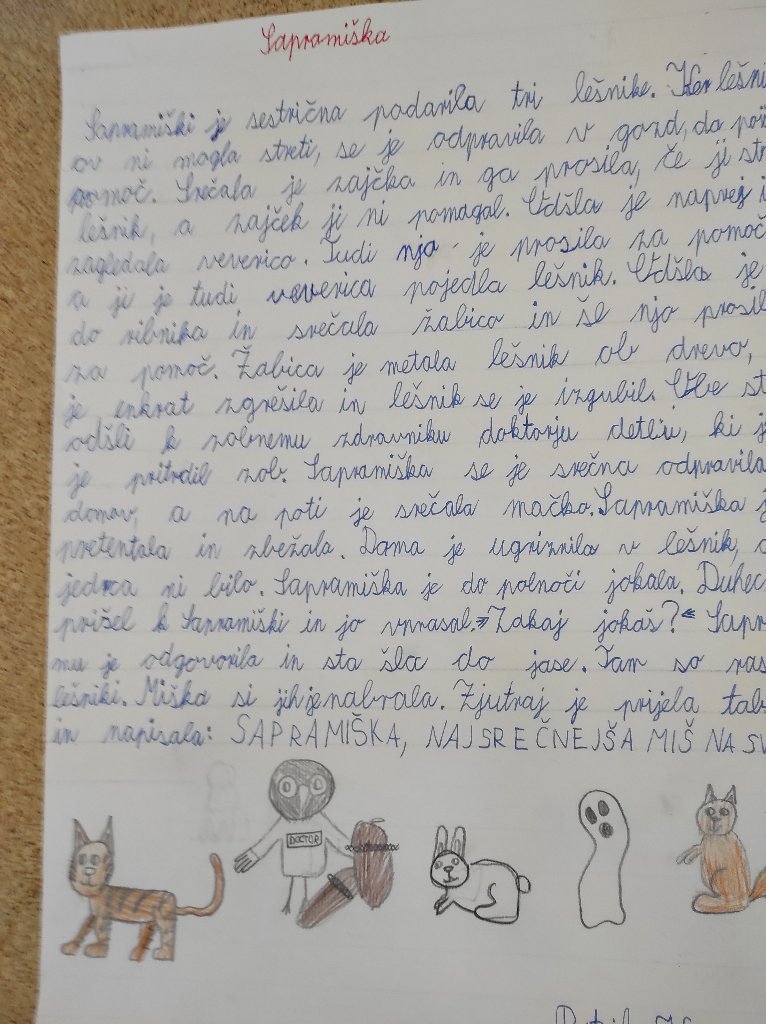 Sapramiška
Sapramiški je sestrična podarila tri lešnike. Ker lešni
ov ni mogla streti, se je odpravila v gozd, da
pomoč. Srečala je zajčka in ga prosila, če ji st
lešnik, a zajček ji ni pomagal. Odšla je naprej i
zagledala veverico. Tudi njo je prosila za pomoč
a ji je tudi veverica pojedla lešnik. Odšla je
do ribnika in srečala žabico in še njo prosil
za pomoč. Žabica je metala lešnik ob drevo,
je enkrat zgrešila in lešnik se je izgubil. Obe st
odšli k zobnemu zdravniku doktorju detlu, ki j
je pritrdil zob. Sapramiška se je srečna odpravila
domov, a na poti je srečala mačko. Sapramiška j
pretentala in zbežala. Doma je ugriznila v lešnik, a
jedrca ni bilo. Sapramiška je do polnoči jokala. Duhec
prišel k Sapramiški in jo vprašal. »Zakaj jokaš?« Sapr
mu je odgovorila in sta šla do jase. Tam so ras
lešniki. Miška si jih je nabrala. Zjutraj je prijela tab
in napisala: SAPRAMIŠKA, NAJSREČNEJŠA MIŠ NA SV
DOCTOR